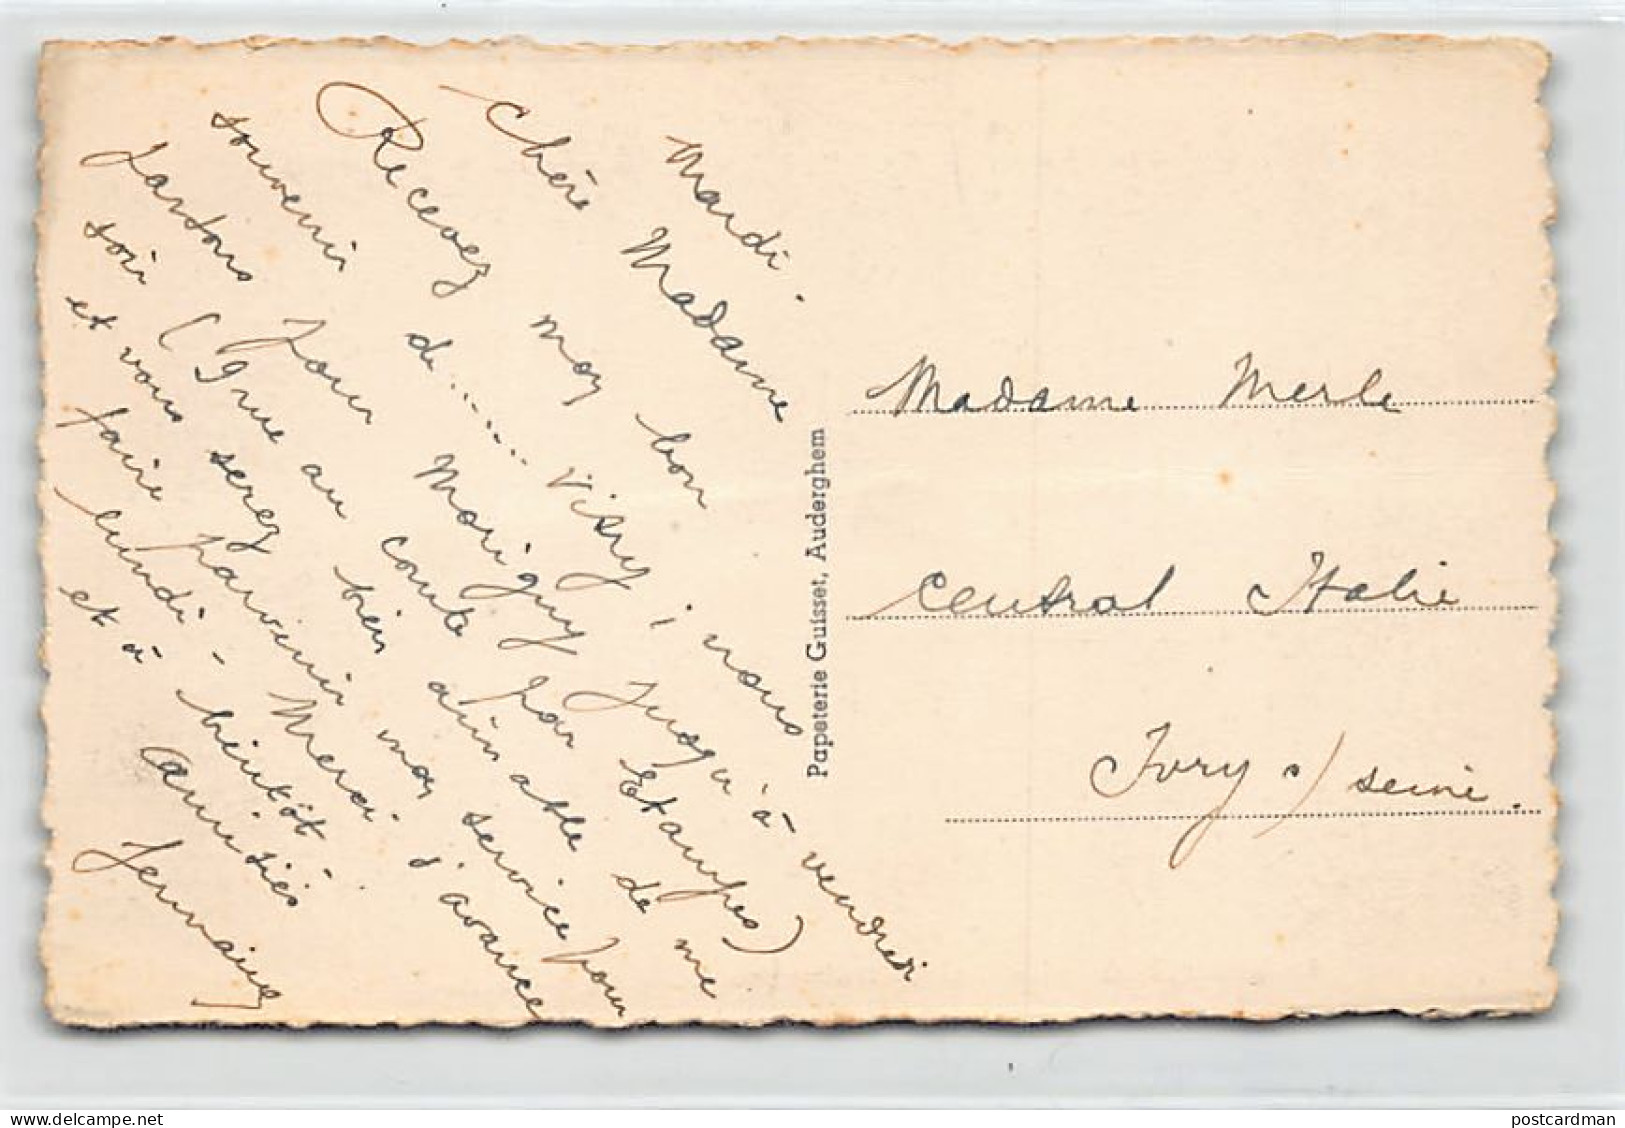 Mardi.
Chère Madame
Recevez moy bon
souvenir de...... Visny, nous
partons pour Marigny jusqu'à vendredi
soir ( rue au conte par Etampes)
et vous serez bien aimable de me
faire parvenir moy service pour
lundi - Merci d'avance
et à bientôt.
Amitiés
Germaine
Papeterie Guisset, Auderghem
Madame Merle
Central Italie
Ivry s/ seine.
postcardman
www.delcampe.net